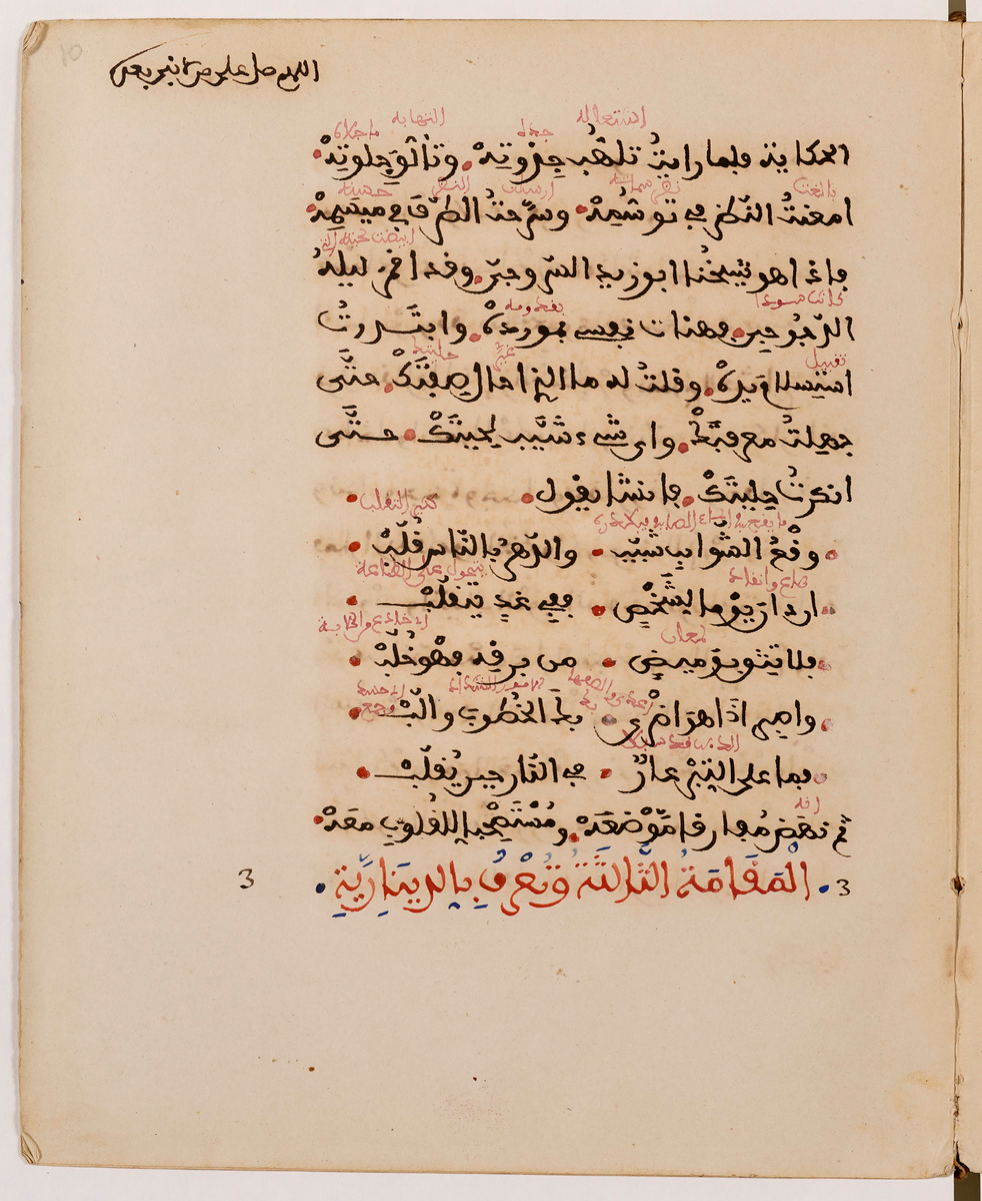 اللهم صل على من لا نبي بعده
التهابه
الحكاية فلما رايت تلهب جذوته وتألق جلوته
بالغت النظر
امعنت النظر في توسمه وسرحت الطرف في ميسمه
فاذا هو شيخنا ابو زيد السروجي وقد اقمر ليله
بقدومه
الدجوجي فهنات نفسي بمورده وابتدرت
تقبيل غير حليتك
استسلام يده وقلت له ما الذي احال صفتك حتى
جهلت معرفتك واي شيء شيب لحيتك حتى
انكرت حليتك فانشا يقول
كثير التقلب
وقع الشوايب شيب والدهر بالناس قلب
ان دان يوما لشخص ففي غد يتغلب
لمعان
فلا تثق بوميض من برقه فهو خلب
واصبر اذا هو اضرى بك الخطوب والب
فما على التبر عار في النار حين يقلب
ثم نهض مفارقا موضعه ومستصحبا القلوب معه
3 المقامة الثالثة وتعرف بالدينارية 3